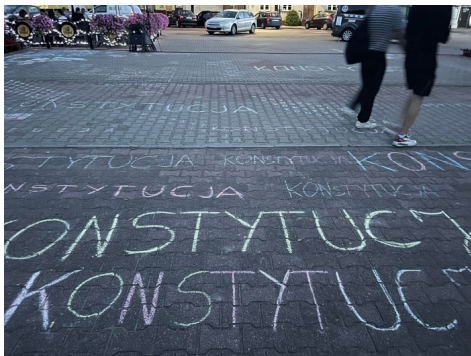 KONST
TYTUCJA
KONSTY
STYTUCJA KONSTYTUCJA KONS
NSTYTUCJA KONSTYTUCJA
KONSTYTUC
KONSTYTUC